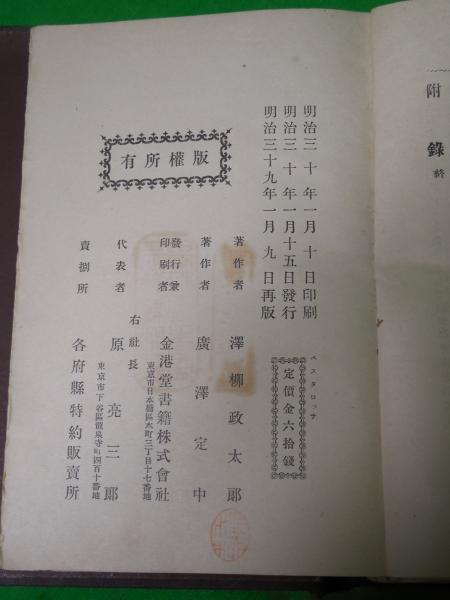 附錄終
明治三十年一月十日印刷
明治三十年一月十五日發行
明治三十九年一月九日再版
ペスタロッチ
定價金六拾錢
版權所有
著作者 澤柳政太郎
著作者 廣澤定中
發行兼印刷者 金港堂書籍株式會社
東京市日本橋區本町三丁目十七番地
右社長
代表者 原亮三郎
東京市下谷區龍泉寺町四百十番地
賣捌所 各府縣特約販賣所